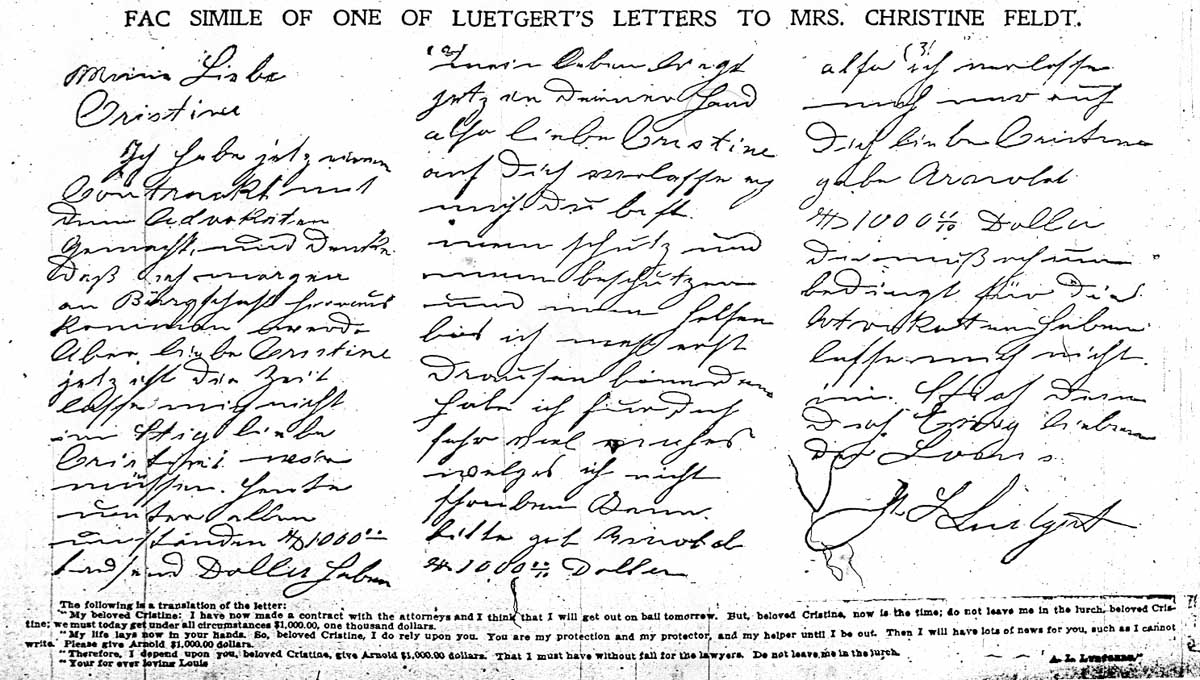 FAC SIMILE OF ONE OF LUETGERT'S LETTERS TO MRS. CHRISTINE FELDT.
Meine Liebe
Cristine
Ich habe jetz einen
Contrackt mit
dem Advokaten
gemacht, und denke
daß ich morgen
an Bürgschaft heraus
kommen werde
Aber, liebe Cristine
jetz ist die Zeit
lasse mig nicht
im Stig liebe
Cristine
müssen heute
unter allen
umständen $1000
tausend Doller haben
(2)
mein leben liegt
jetz in deiner Hand
also liebe Cristine
auf dich verlasse
mich du bist
mein schutz und
mein beschützer
und mein helfer
bis ich
drausen bin
habe ich für dich
sehr viel
welges ich nicht
schreiben kann.
bitte geb Arnold
$1000 Doller
(3)
also ich verlasse
mich nur auf
dich liebe Cristine
gebe Arnold
$1000 Doller
die muß ich un
bedingt für die
Atvokaten haben
lasse mich nicht
im Stich dein
dich Ewig lieben
der Louis
A L Luetgert
The following is a translation of the letter:
"My beloved Cristine: I have now made a contract with the attorneys and I think that I will get out on bail tomorrow. But, beloved Cristine, now is the time; do not leave me in the lurch, beloved Cris-
tine; we must today get under all circumstances $1,000.00, one thousand dollars.
"My life lays now in your hands. So, beloved Cristine, I do rely upon you. You are my protection and my protector, and my helper until I be out. Then I will have lots of news for you, such as I cannot
write. Please give Arnold $1,000.00 dollars.
"Therefore, I depend upon you, beloved Cristine, give Arnold $1,000.00 dollars. That I must have without fail for the lawyers. Do not leave me in the lurch.
"Your for ever loving Louis
A. L.